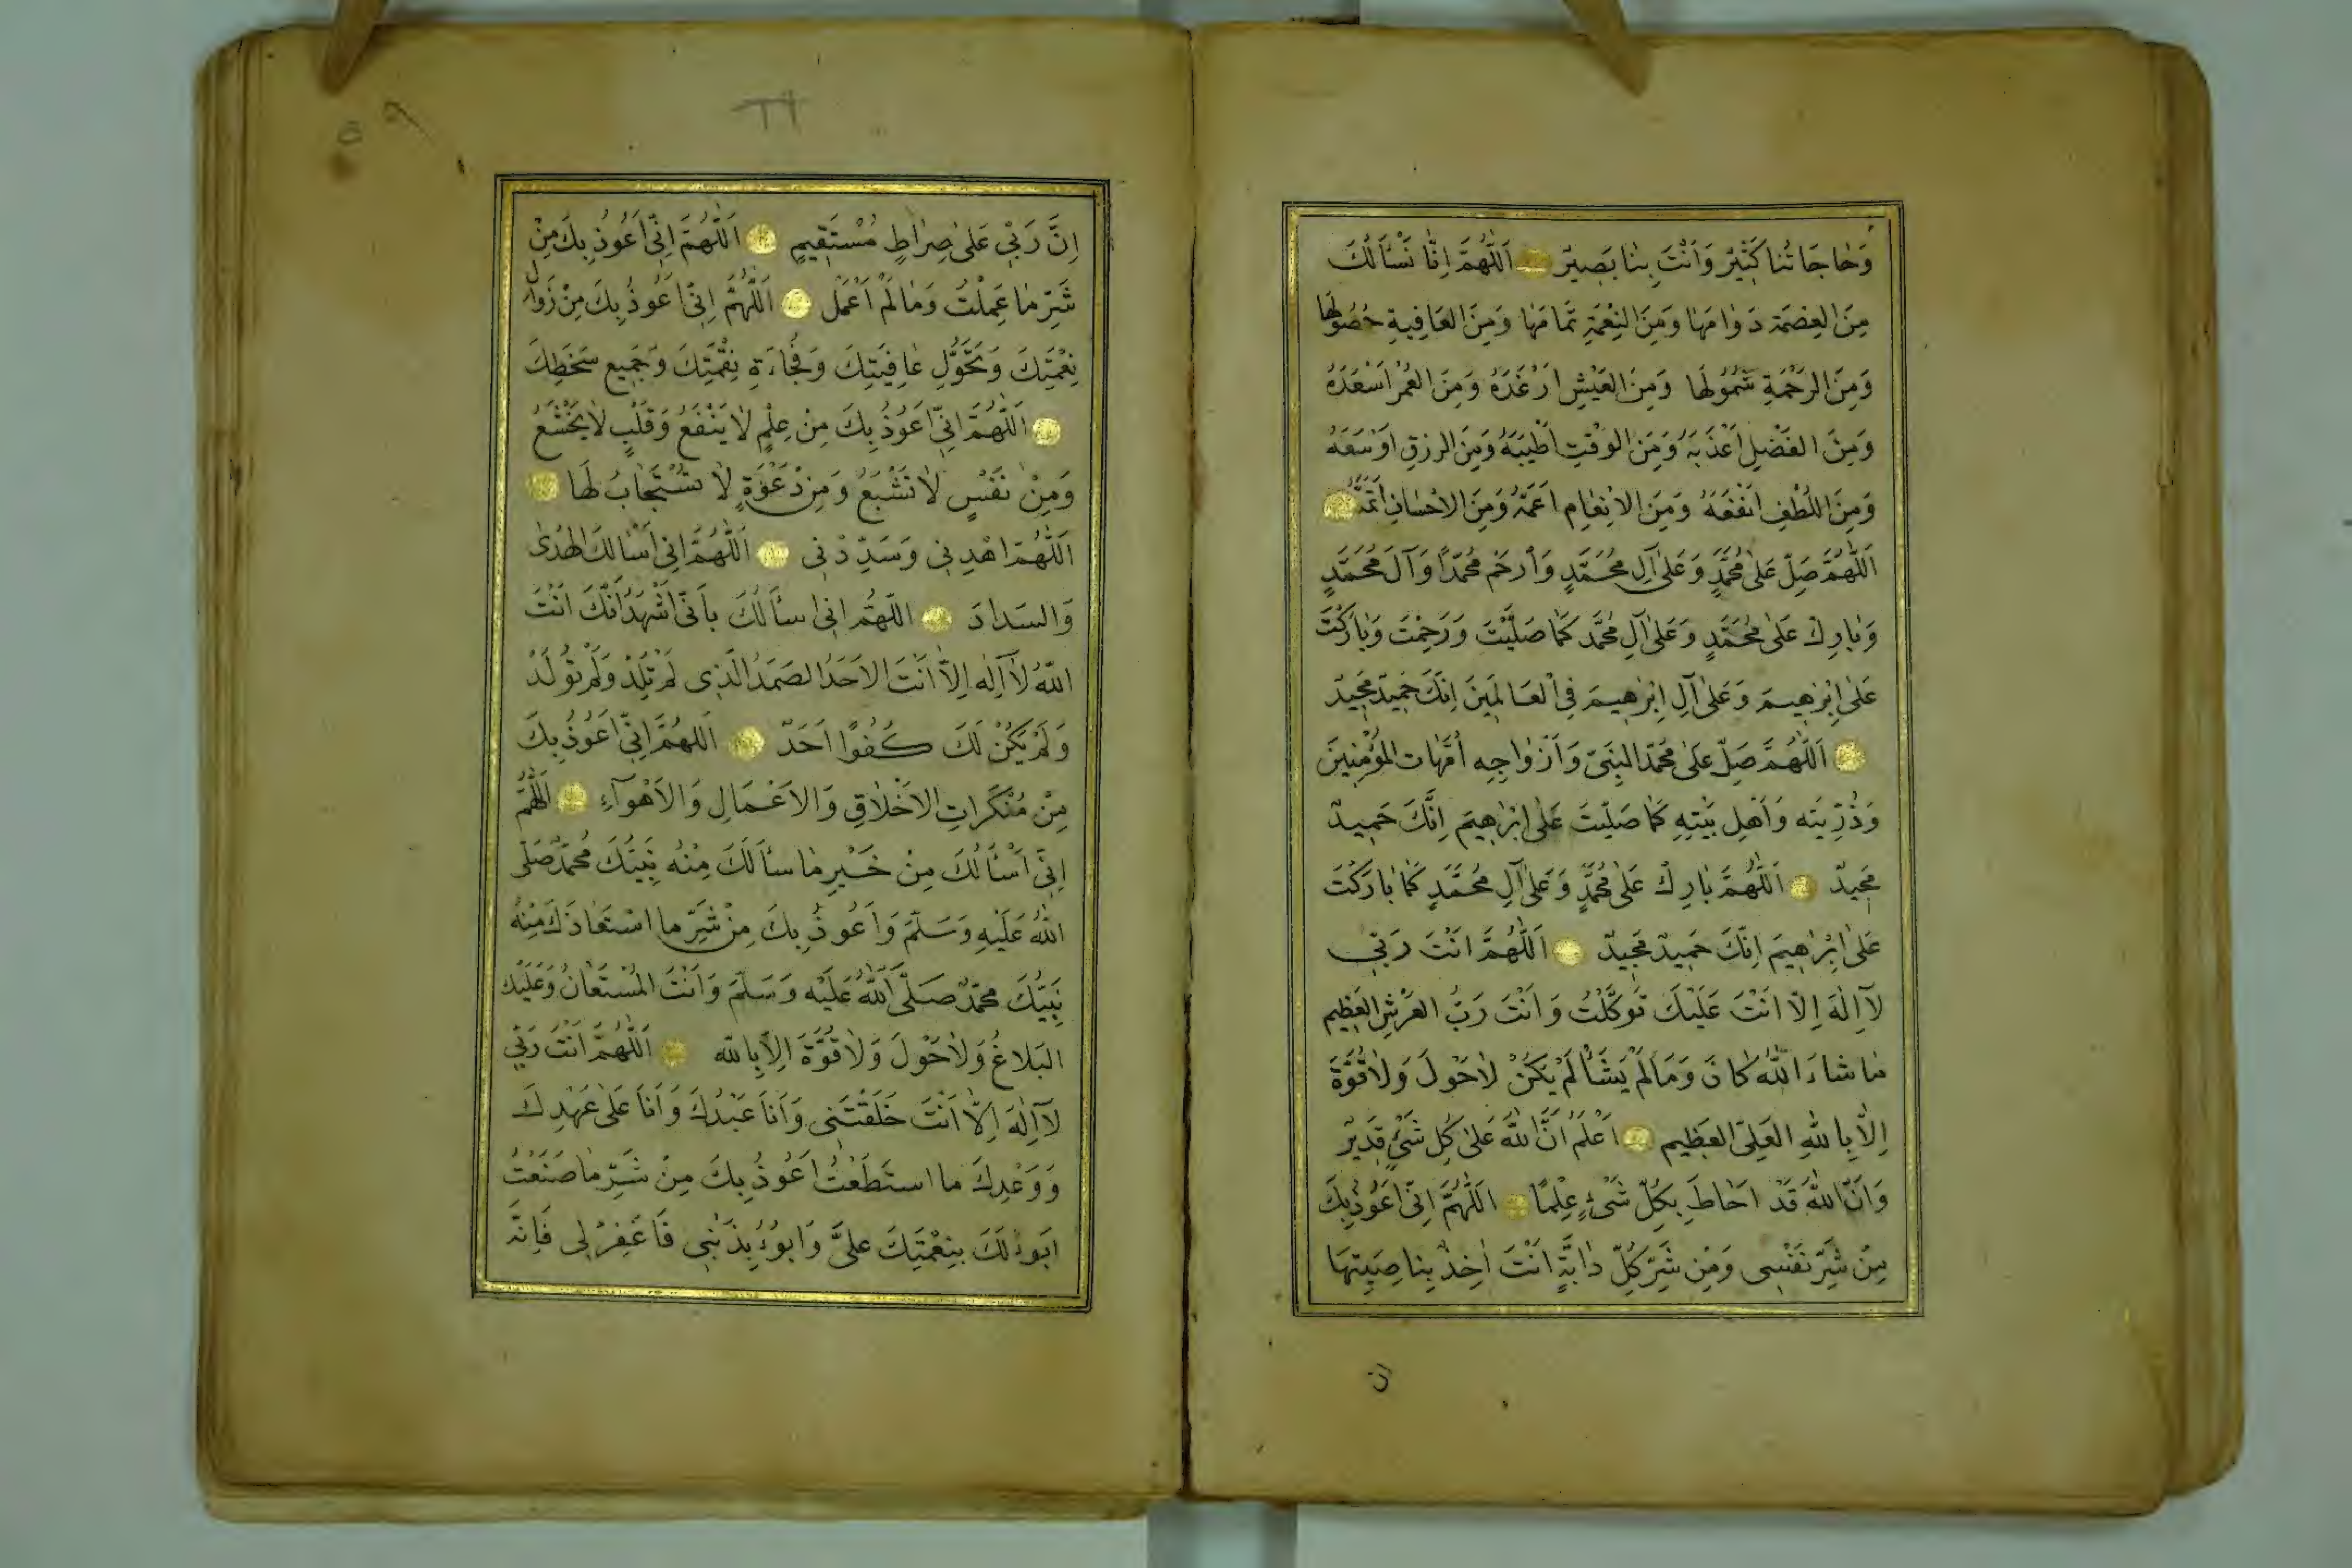 وَحَاجَاتُنَا كَثِيرٌ وَاَنْتَ بِنَا بَصِيرٌ اَللّٰهُمَّ اِنَّا نَسْأَلُكَ
مِنَ العِصْمَةِ دَوَامَهَا وَمِنَ النِعْمَةِ تَمَامَهَا وَمِنَ العَافِيةِ حُصُولَهَا
وَمِنَ الرَحْمَةِ شُمُولَهَا وَمِنَ العَيْشِ اَرْغَدَهُ وَمِنَ العُمْرِ اَسْعَدَهُ
وَمِنَ الفَضْلِ اَعْذَبَهُ وَمِنَ الوَقْتِ اَطْيَبَهُ وَمِنَ الرزقِ اَوْسَعَهُ
وَمِنَ اللُطْفِ اَنْفَعَهُ وَمِنَ الاِنْعَامِ اَعَمَّهُ وَمِنَ الاِحْسَانِ اَتَمَّهُ
اَللّٰهُمَّ صَلِّ عَلٰى مُحَمَّدٍ وَعَلٰى آلِ مُحَمَّدٍ وَاَرْحَمْ مُحَمَّدًا وَآلَ مُحَمَّدٍ
وَبَارِكْ عَلٰى مُحَمَّدٍ وَعَلٰى آلِ مُحَمَّد كَمَا صَلَّيْتَ وَرَحِمْتَ وَبَارَكْتَ
عَلٰى اِبْرٰهِيمَ وَعَلٰى آلِ اِبْرٰهِيمَ فِى اْلعَالَمِينَ اِنَّكَ حَمِيدٌ مَجِيدٌ
اَللّٰهُمَّ صَلِّ عَلٰى مُحَمَّد النَبِىّ وَاَزْوَاجِهِ اُمَّهَات المُؤْمِنِينَ
وَذُرِّيَتِه وَاَهْلِ بَيْتِهِ كَمَا صَلَّيتَ عَلٰى اِبْرٰهِيمَ اِنَّكَ حَمِيدٌ
مَجِيدٌ اَللّٰهُمَّ بَارِكْ عَلٰى مُحَمَّدٍ وَعَلٰى آلِ مُحَمَّدٍ كَمَا بَارَكْتَ
عَلٰى اِبْرٰهِيمَ اِنَّكَ حَمِيدٌ مَجِيدٌ اَللّٰهُمَّ اَنْتَ رَبِّى
لَآ اِلٰهَ اِلَّا اَنْتَ عَلَيْكَ تَوَكَّلْتُ وَاَنْتَ رَبُّ العَرْشِ العَظِيم
مَا شاءَ اللّٰهُ كَانَ وَمَا لَمْ يَشَأْ لَمْ يَكُنْ لَا حَوْلَ وَلَا قُوَّةَ
اِلَّا بِاللّٰهِ العَلِىّ العَظِيم اَعْلَمُ اَنَّ اللّٰهَ عَلٰى كُلِّ شَىْءٍ قَدِيرٌ
وَاَنَّ اللّٰهَ قَدْ اَحَاطَ بِكُلِّ شَىْءٍ عِلْمًا اَللّٰهُمَّ اِنِّى اَعُوذُ بِكَ
مِنْ شَرِّ نَفْسِى وَمِنْ شَرِّ كُلِّ دَابَّةٍ اَنْتَ اٰخِذٌ بِنَاصِيَتِهَا
ان
اِنَّ رَبِّى عَلٰى صِرَاطٍ مُسْتَقِيمٍ اَللّٰهُمَّ اِنِّى اَعُوذُ بِكَ مِنْ
شَرِّ مَا عَمِلْتُ وَمَا لَمْ اَعْمَل اَللّٰهُمَّ اِنِّى اَعُوذُ بِكَ مِنْ زَوَالِ
نِعْمَتِكَ وَتَحَوُّلِ عَافِيَتِكَ وَفُجَاءَةِ نِقْمَتِكَ وَجَمِيعِ سَخَطِكَ
اَللّٰهُمَّ اِنِّى اَعُوذُ بِكَ مِنْ عِلْمٍ لَا يَنْفَعُ وَقَلْبٍ لَا يَخْشَعُ
وَمِنْ نَفْسٍ لَا تَشْبَعُ وَمِنْ دَعْوَةٍ لَا تُسْتَجَابُ لَهَا
اَللّٰهُمَّ اهْدِنِى وَسَدِّدْنِى اَللّٰهُمَّ اِنِى اَسْأَلُكَ الهُدٰى
وَالسَدادَ اَللّٰهُمَّ اِنِى اَسأَلُكَ بِاَنِّى اَشْهَدُ اَنَّكَ اَنْتَ
اللّٰهُ لَآ اِلٰهَ اِلَّا اَنْتَ الاَحَدُ الصَمَدُ الَّذِى لَمْ تَلِدْ وَلَمْ تُولَدْ
وَلَمْ يَكُنْ لَكَ كُفُوًا اَحَدٌ اَللّٰهُمَّ اِنِّى اَعُوذُ بِكَ
مِنْ مُنْكَرَاتِ الاَخْلَاقِ وَالاَعْمَالِ وَالاَهْوَآءِ اَللّٰهُمَّ
اِنِّى اَسْأَلُكَ مِنْ خَيْرِ مَا سأَلَكَ مِنْهُ نَبِيُّكَ مُحَمَّدٌ صَلَّى
اللّٰهُ عَلَيْهِ وَسَلَّمَ وَاَعُوذُ بِكَ مِنْ شَرِّ ما اسْتَعَاذَكَ مِنْهُ
نَبِيُّكَ مُحَمَّدٌ صَلَّى اَللّٰهُ عَلَيْهِ وَسَلَّمَ وَاَنْتَ المُسْتَعَانُ وَعَلَيْكَ
البَلَاغُ وَلَا حَوْلَ وَلَا قُوَّةَ اِلَّا بِاللّٰه اَللّٰهُمَّ اَنْتَ رَبِّى
لَآ اِلٰهَ اِلَّا اَنْتَ خَلَقْتَنِى وَاَنَا عَبْدُكَ وَاَنَا عَلٰى عَهْدِكَ
وَوَعْدِكَ ما اسْتَطَعْتُ اَعُوذُ بِكَ مِنْ شَرِّ مَا صَنَعْتُ
اَبُوءُ لَكَ بِنِعْمَتِكَ عَلَىَّ وَاَبُوْءُ بِذَنْبِى فَاغْفِرْ لِى فَاِنَّهُ